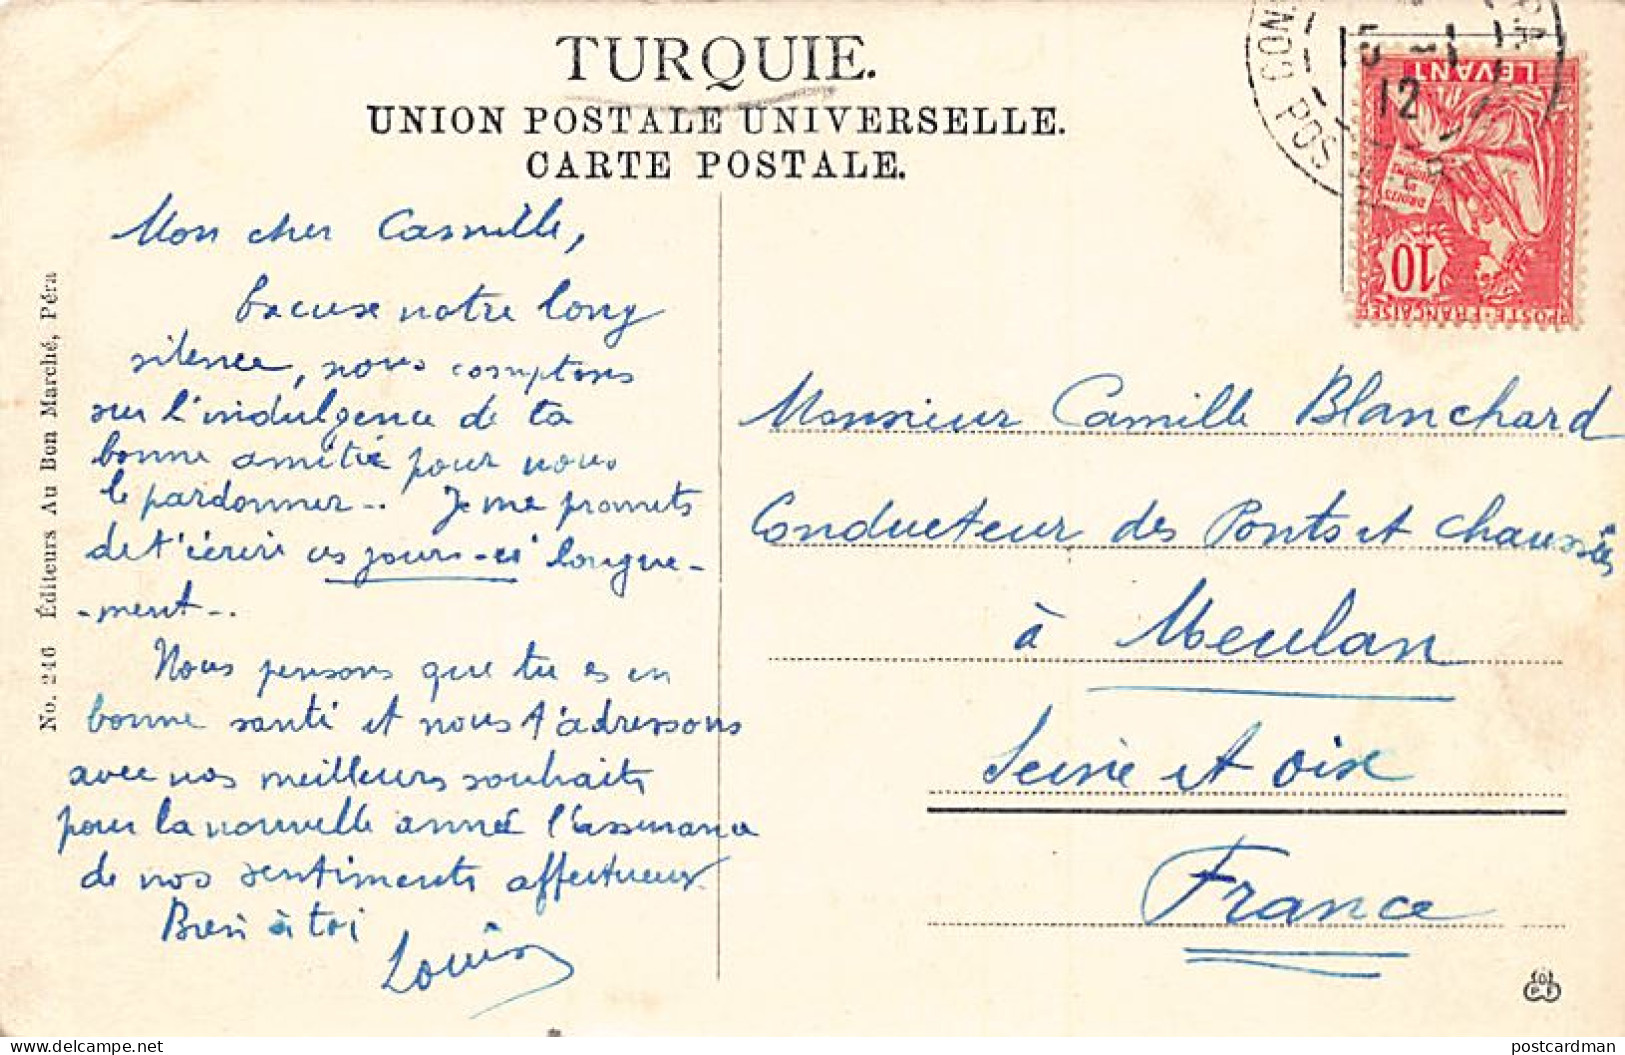 TURQUIE.
UNION POSTALE UNIVERSELLE.
CARTE POSTALE.
Mon cher Camille,
Excuse notre long
silence, nous comptons
sur l'indulgence de ta
bonne amitié pour nous
le pardonner -. Je me promets
de t'écrire ces jours-ci longue-
-ment -.
Nous pensons que tu es en
bonne santé et nous t'adressons
avec nos meilleurs souhaits
pour la nouvelle année l'assurance
de nos sentiments affectueux.
Bien à toi
Louis
No. 246 Éditeurs Au Bon Marché, Péra
15 -1
12
CON
POS
LEVANT
DROITS
10
POSTE·FRANÇAISE
Monsieur Camille Blanchard
Conducteur des Ponts et Chaussées
à Meulan
Seine et Oise
France
postcardman